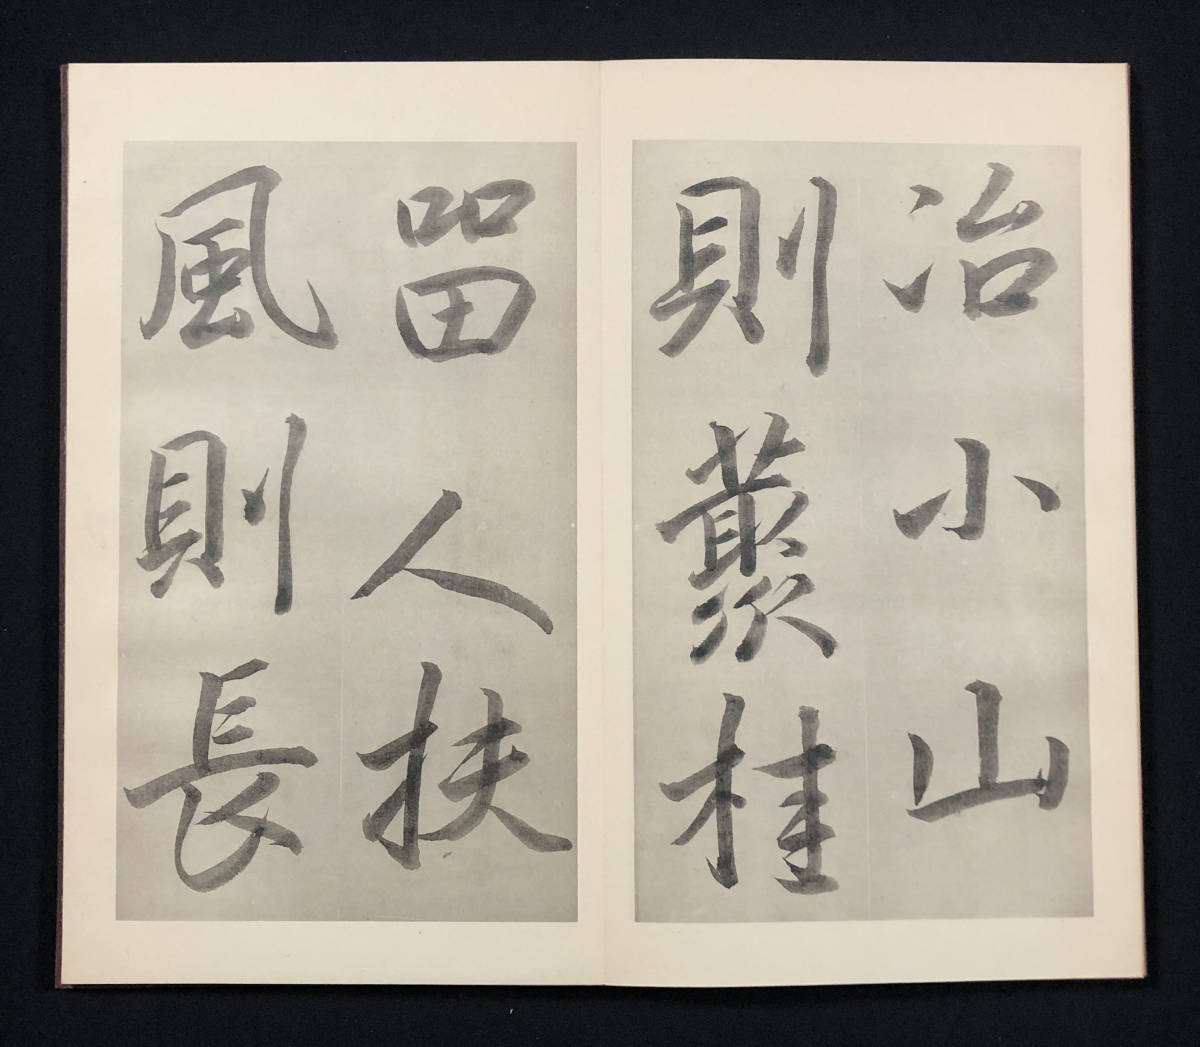 冶小山
則叢桂
留人扶
風則長